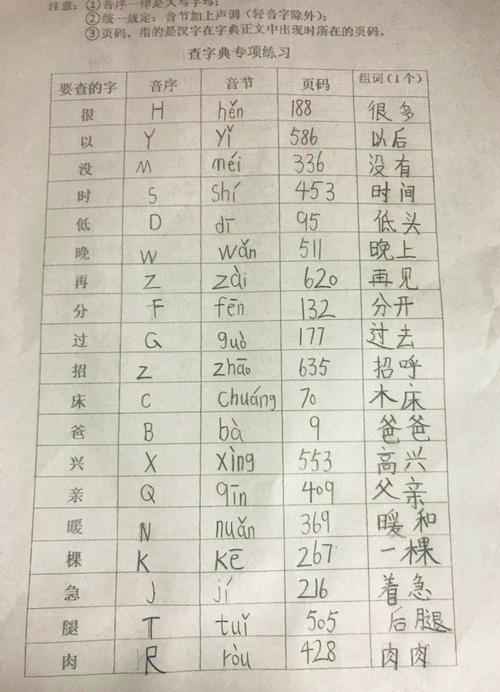 注意：①音序一律是大写字母；
②统一规定：音节加上声调（轻音字除外）；
③页码，指的是汉字在字典正文中出现时所在的页码。
查字典专项练习
要查的字 音序 音节 页码 组词（1个）
很 H hěn 188 很多
以 Y yǐ 586 以后
没 M méi 336 没有
时 S shí 453 时间
低 D dī 95 低头
晚 W wǎn 511 晚上
再 Z zài 620 再见
分 F fēn 132 分开
过 G guò 177 过去
招 Z zhāo 635 招呼
床 C chuáng 70 木床
爸 B bà 9 爸爸
兴 X xìng 553 高兴
亲 Q qīn 409 父亲
暖 N nuǎn 369 暖和
棵 K kē 267 一棵
急 J jí 216 着急
腿 T tuǐ 505 后腿
肉 R ròu 428 肉肉